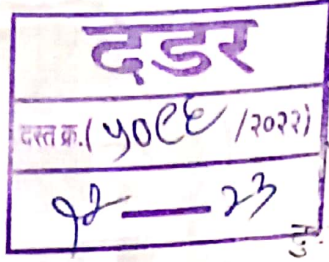 दडर
दस्त क्र.( ५०९६ /२०२२)
१२ — २३